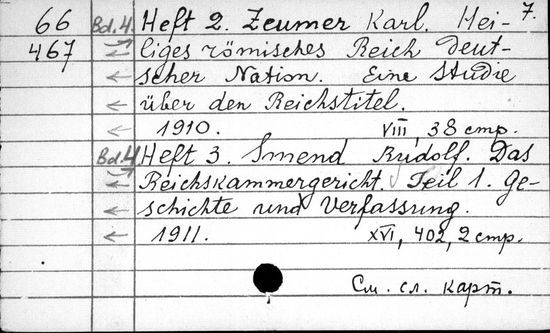 7.
66 Bd. 4. Heft 2. Zeumer Karl. Hei-
467 liges römisches Reich Deut-
scher Nation. Eine Studie
über den Reichstitel.
1910. VIII, 38 стр.
Bd. 4 Heft 3. Smend Rudolf. Das
Reichskammergericht. Teil 1. Ge-
schichte und Verfassung.
1911. XVI, 402, 2 стр.
См. сл. карт.